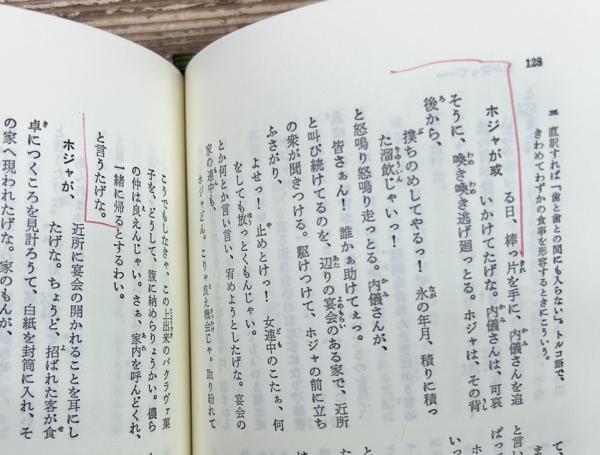 128
三 直訳すれば「歯と歯との間にも入らない」。トルコ語で、
きわめてわずかの食事を形容するときにこういう。
ホジャが或
る日、棒っ片を手に、内儀さんを追
いかけてたげな。内儀さんは、可哀
そうに、喚き喚き逃げ廻っとる。ホジャは、その背
後から、
撲ちのめしてやるっ! 永の年月、積りに積っ
た溜飲じゃいっ!
と怒鳴り怒鳴り走っとる。内儀さんが、
皆さぁん! 誰かぁ助けてぇっ。
と叫び続けてるのを、辺りの宴会のある家で、近所
の衆が聞きつける。駆けつけて、ホジャの前に立ち
ふさがり、
よせっ! 止めとけっ! 女連中のこたぁ、何
をしても放っとくもんじゃい。
とか何とか言い言い、宥めようとしたげな。宴会の
家の連中も、
ホジャどん。こりゃ良え機会じゃ。取り紛れて
こうでもしなきゃ、この上出来のバクラヴァ菓
子を、どうして、腹に納められりょうかい。儂ら
の仲は良えんじゃ。さぁ、家内を呼んどくれ、
一緒に帰るとするわい。
と言うたげな。
ホジャが、
近所に宴会の開かれることを耳にし
たげな。ちょうど、招ばれた客が食
卓につくころを見計ろうて、白紙を封筒に入れ、そ
の家へ現われたげな。家のもんが、